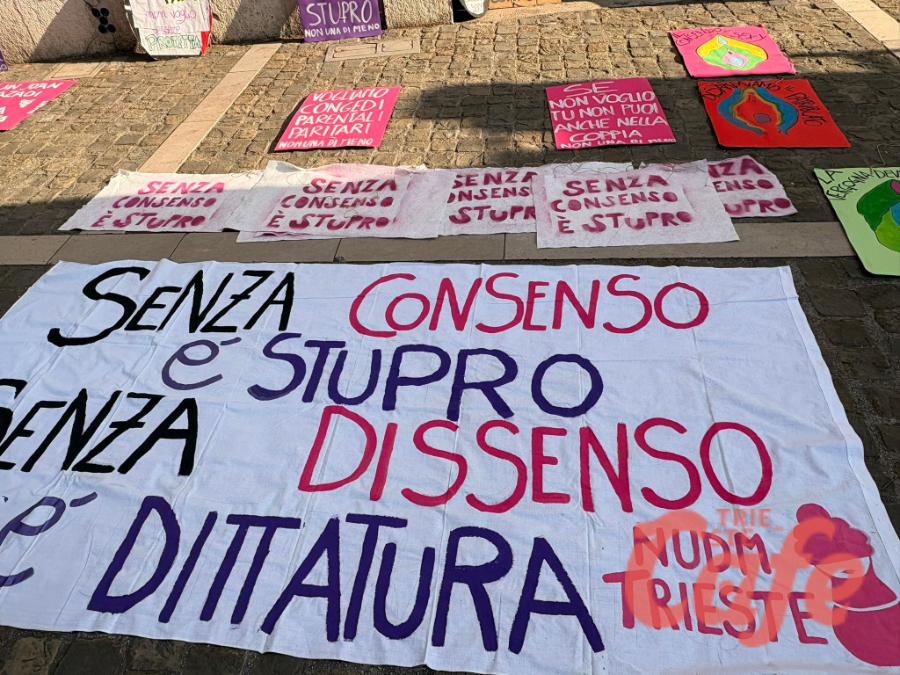 STUPRO
NON UNA DI MENO
VOGLIAMO
CONGEDI
PARENTALI
PARITARI
NON UNA DI MENO
SE
NON VOGLIO
TU NON PUOI
ANCHE NELLA
COPPIA
NON UNA DI MENO
SENZA
CONSENSO
È STUPRO
SENZA
CONSENSO
È STUPRO
SENZA
CONSENSO
È STUPRO
SENZA
CONSENSO
È STUPRO
SENZA
CONSENSO
STUPRO
SENZA CONSENSO
é STUPRO
SENZA DISSENSO
é DITTATURA
NUDM
TRIESTE
TRIE
Cafe